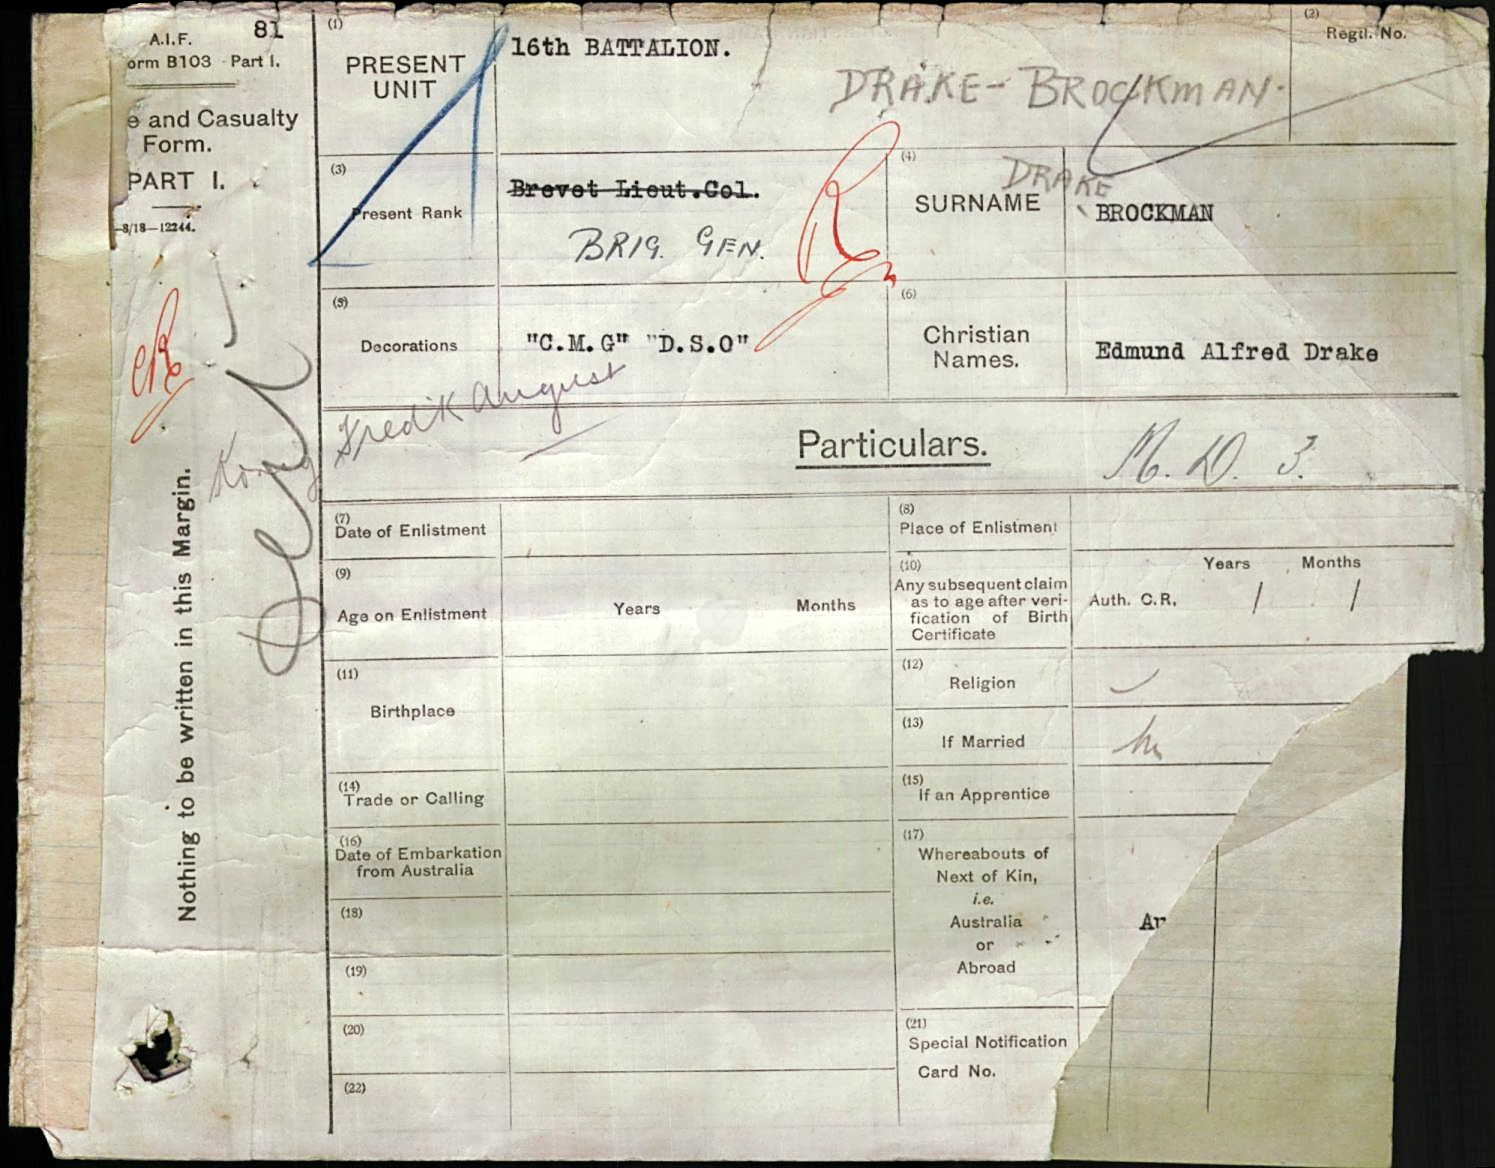 A.I.F. 81
orm B103 Part I.
e and Casualty
Form.
PART I.
—8/18—12244.
Nothing to be written in this Margin.
(1)
PRESENT
UNIT
16th BATTALION.
DRAKE-BROCKMAN.
(2)
Regtl. No.
(3)
Present Rank
Brevet Lieut.Col.
BRIG. GEN.
(4)
SURNAME
DRAKE
BROCKMAN
(5)
Decorations
"C.M.G" "D.S.O"
(6)
Christian
Names.
Edmund Alfred Drake
Fredk August
Particulars.
M. D. 3.
(7)
Date of Enlistment
(8)
Place of Enlistment
(9)
Age on Enlistment
Years Months
(10)
Any subsequent claim
as to age after veri-
fication of Birth
Certificate
Years Months
Auth. C.R. / /
(11)
Birthplace
(12)
Religion
(13)
If Married
(14)
Trade or Calling
(15)
If an Apprentice
(16)
Date of Embarkation
from Australia
(17)
Whereabouts of
Next of Kin,
i.e.
Australia
or
Abroad
(18)
(19)
(20)
(21)
Special Notification
Card No.
(22)